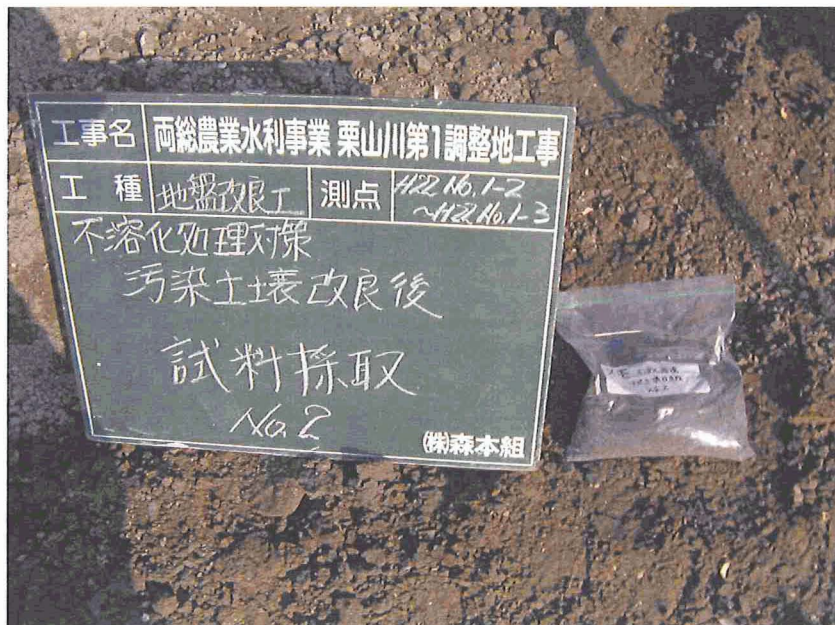 工事名 両総農業水利事業 栗山川第1調整地工事
工種 地盤改良工 測点 H22 No.1-2
~H22 No.1-3
不溶化処理対策
汚染土壌改良後
試料採取
No.2
㈱森本組